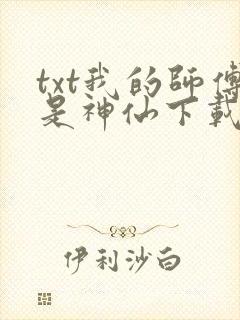 txt我的師傅
是神仙下載
伊利沙白